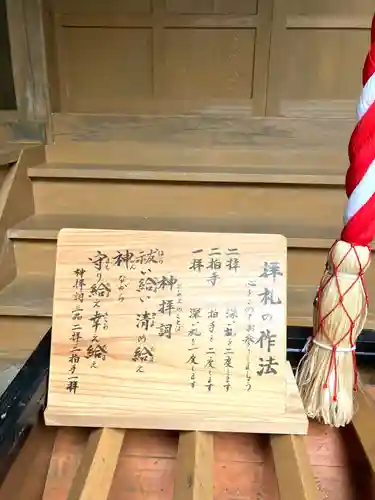 拝礼の作法
心をこめてお参りしましょう
二拝 深いお礼を二度します
二拍手 拍手を二度します
一拝 深いお礼を一度します
神拝詞
祓い給い清め給え
神ながら
守り給え幸え給え
神拝詞 二拝 二拍手 一拝